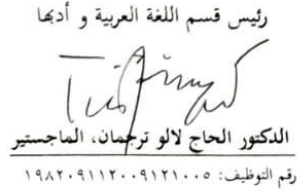 رئيس قسم اللغة العربية و أدبها
الدكتور الحاج لالو ترجمان، الماجستير
رقم التوظيف: ١٩٨٢٠٩١١٢٠٠٩١٢١٠٠٥